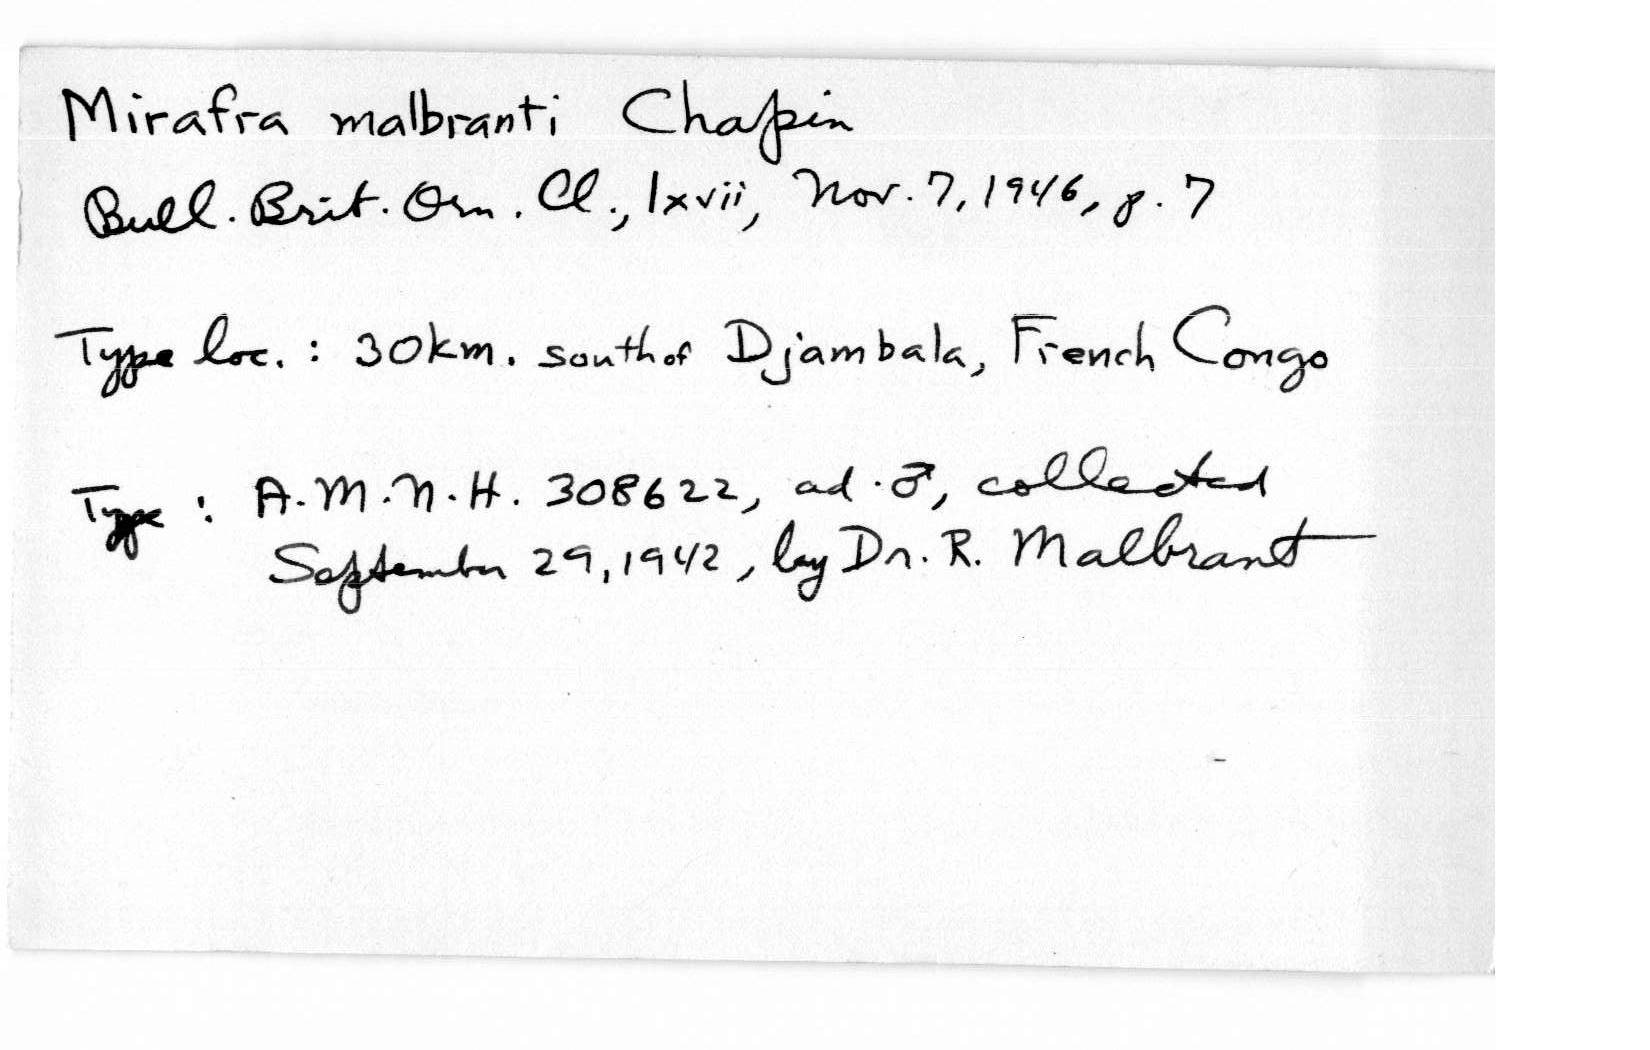 Mirafra malbranti Chapin
Bull. Brit. Orn. Cl., lxvii, Nov. 7, 1946, p. 7
Type loc. : 30km. south of Djambala, French Congo
Type : A.M.N.H. 308622, ad. ♂, collected
September 29, 1942, by Dr. R. Malbrant